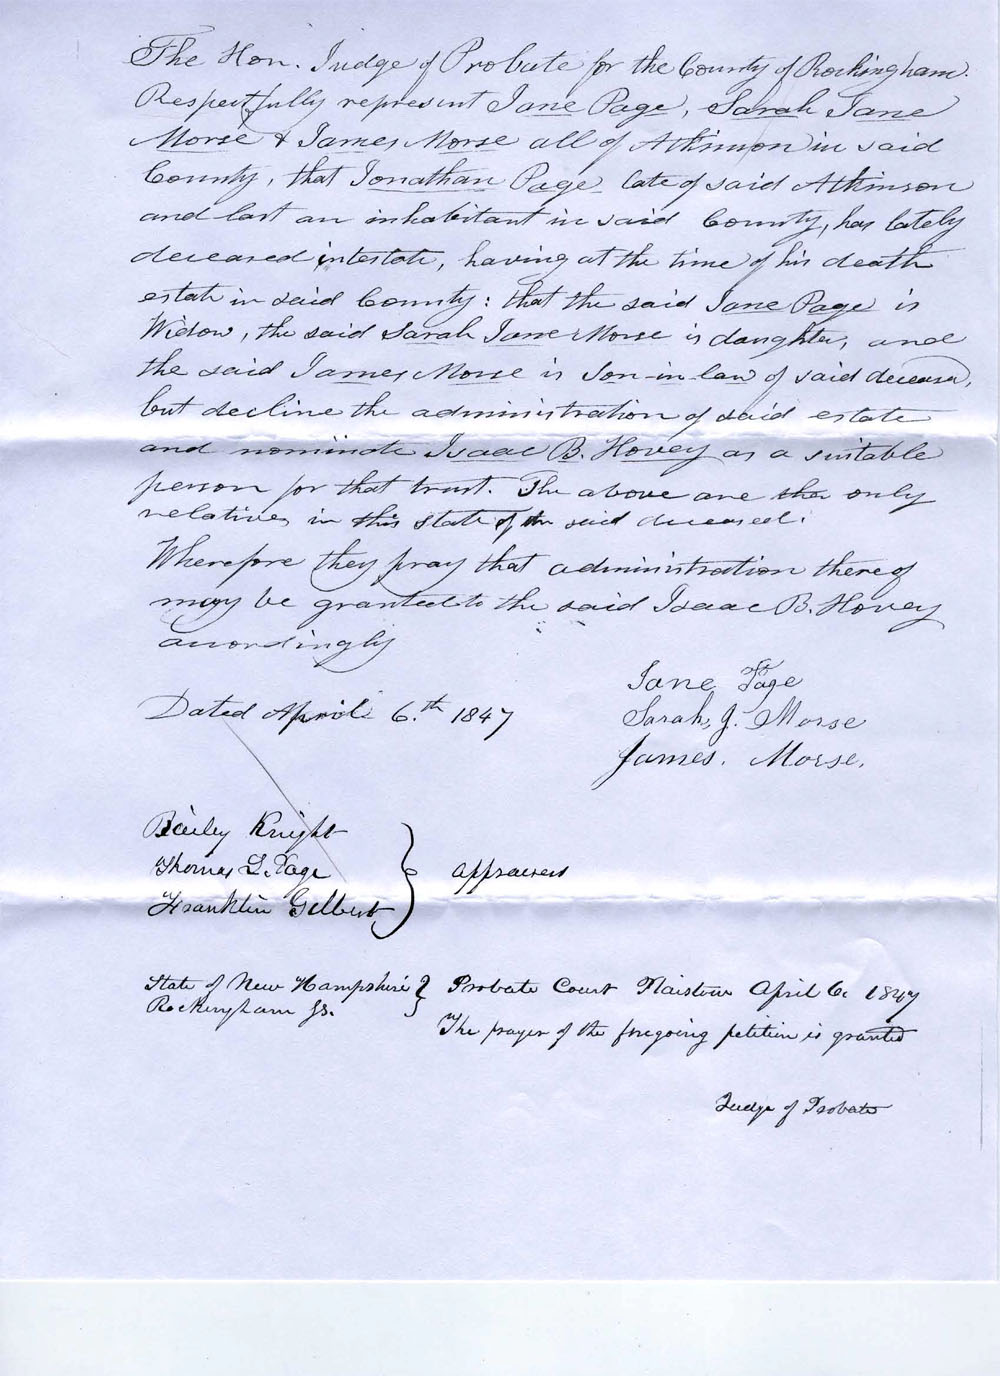 The Hon. Judge of Probate for the County of Rockingham.
Respectfully represent Jane Page, Sarah Jane
Morse & James Morse all of Atkinson in said
County, that Jonathan Page late of said Atkinson
and last an inhabitant in said County, has lately
deceased intestate, having at the time of his death
estate in said County: that the said Jane Page is
Widow, the said Sarah Jane Morse is daughter, and
the said James Morse is Son-in-law of said deceased,
but decline the administration of said estate
and nominate Isaac B. Hovey as a suitable
person for that trust. The above are the only
relatives in this State of the said deceased.
Wherefore they pray that administration thereof
may be granted to the said Isaac B. Hovey
accordingly
Dated April 6.th 1847
Jane Page
Sarah, J. Morse
James. Morse.
Bailey Knight
Thomas L. Page
Franklin Gilbert
} appraisers
State of New Hampshire } Probate Court Plaistow April 6. 1847
Rockingham Ss.
The prayer of the foregoing petition is granted
Judge of Probate